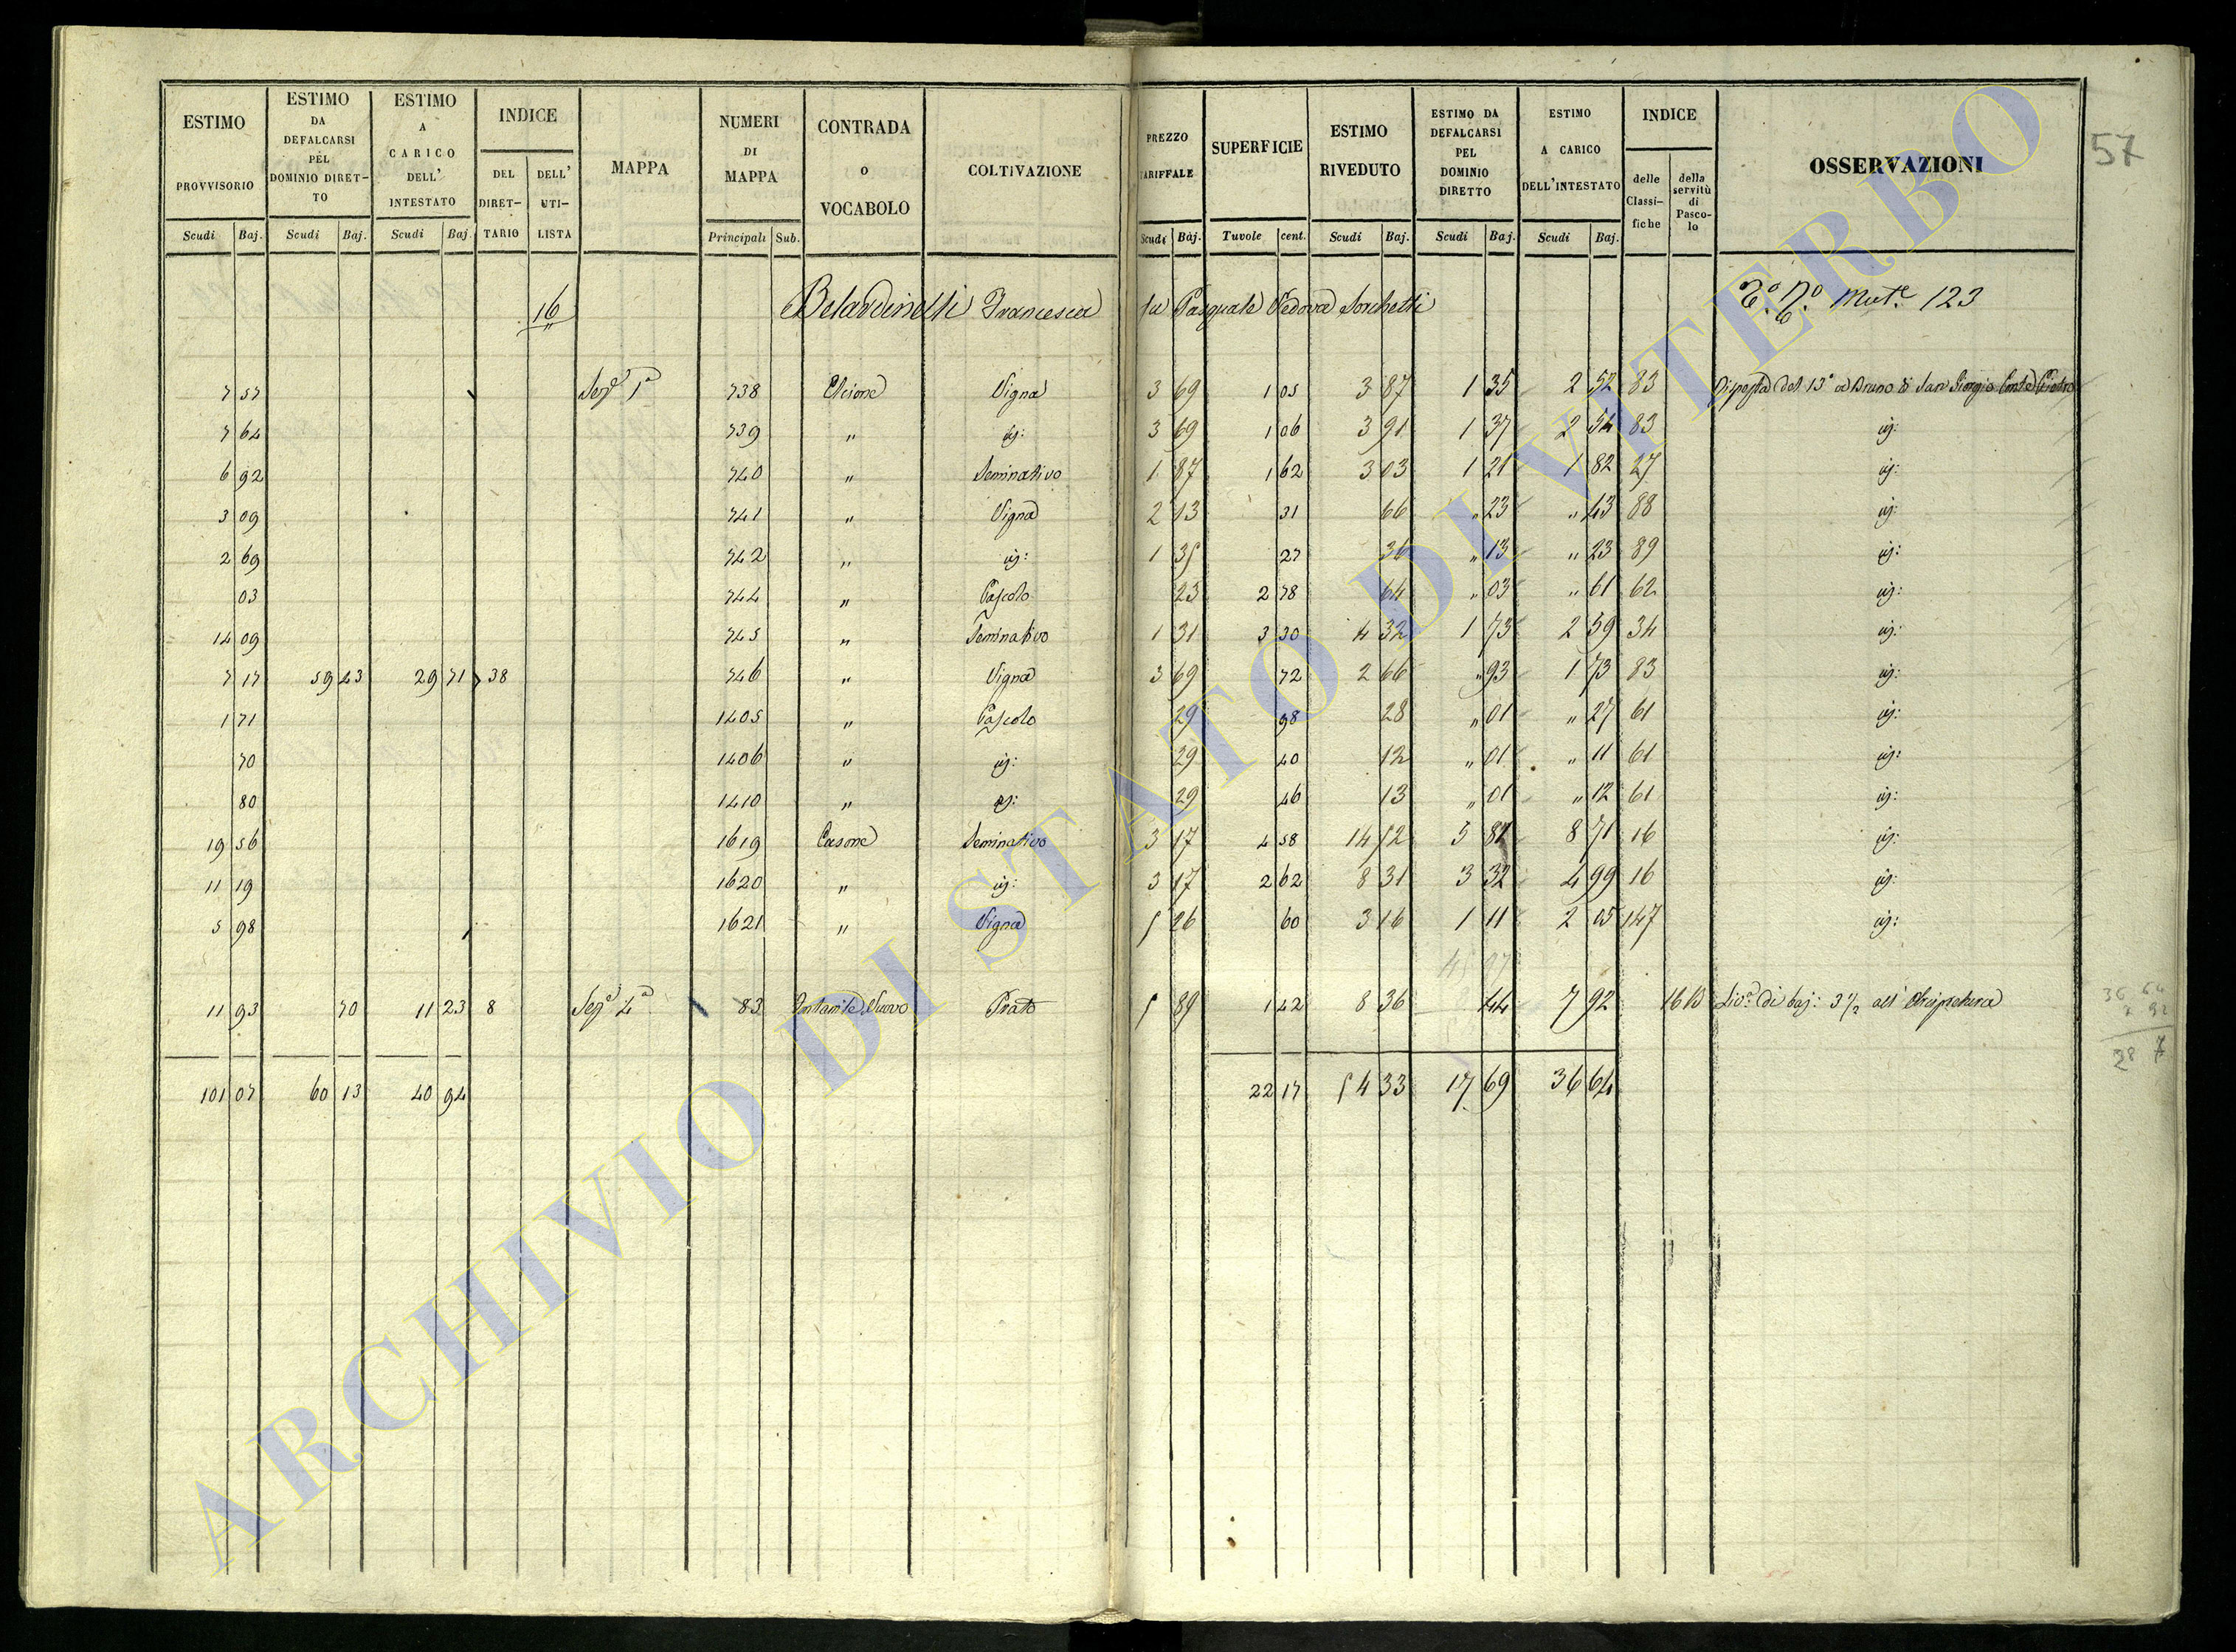 ESTIMO PROVVISORIO | ESTIMO DA DEFALCARSI PEL DOMINIO DIRETTO | ESTIMO A CARICO DELL' INTESTATO | INDICE | MAPPA | NUMERI DI MAPPA | CONTRADA o VOCABOLO | COLTIVAZIONE | PREZZO TARIFFALE | SUPERFICIE | ESTIMO RIVEDUTO | ESTIMO DA DEFALCARSI PEL DOMINIO DIRETTO | ESTIMO A CARICO DELL'INTESTATO | INDICE | OSSERVAZIONI
57
DEL DIRETTARIO | DELL' UTILISTA | delle Classifiche | della servitù di Pascolo
Scudi Baj. | Scudi Baj. | Scudi Baj. | Principali Sub. | Scudi Baj. | Tavole cent. | Scudi Baj. | Scudi Baj. | Scudi Baj.
16 Belardinelli Francesca fu Pasquale Vedova Sorchetti Mut.e 123
7 57 Sez.e 1a 738 Elcione Vigna 3 69 1 05 3 87 1 35 2 52 83 Dispetta del 13° a Bruno di San Giorgio Conte Pietro
7 64 739 " id: 3 69 1 06 3 91 1 37 2 54 83 id:
6 92 740 " Seminativo 1 87 1 62 3 03 1 21 1 82 27 id:
3 09 741 " Vigna 2 13 31 66 " 23 " 43 88 id:
2 69 742 " id: 1 35 27 36 " 13 " 23 89 id:
03 744 " Pascolo 23 2 78 64 " 03 " 61 62 id:
14 09 745 " Seminativo 1 31 3 30 4 32 1 73 2 59 34 id:
7 17 59 43 29 71 38 746 " Vigna 3 69 72 2 66 " 93 1 73 83 id:
1 71 1405 " Pascolo 29 98 28 " 01 " 27 61 id:
70 1406 " id: 29 40 12 " 01 " 11 61 id:
80 1410 " id: 29 46 13 " 01 " 12 61 id:
19 56 1619 Casone Seminativo 3 17 4 58 14 52 5 81 8 71 16 id:
11 19 1620 " id: 3 17 2 62 8 31 3 32 4 99 16 id:
5 98 1621 " Vigna 5 26 60 3 16 1 11 2 05 147 id:
11 93 70 11 23 8 Sez.e 4a 83 Fontanile Nuovo Prato 5 89 1 42 8 36 44 7 92 16 Liv.o di baj: 3 1/2 all'
36 64
7 92
28 7
101 07 60 13 40 94 22 17 54 33 17 69 36 64
ARCHIVIO DI STATO DI VITERBO